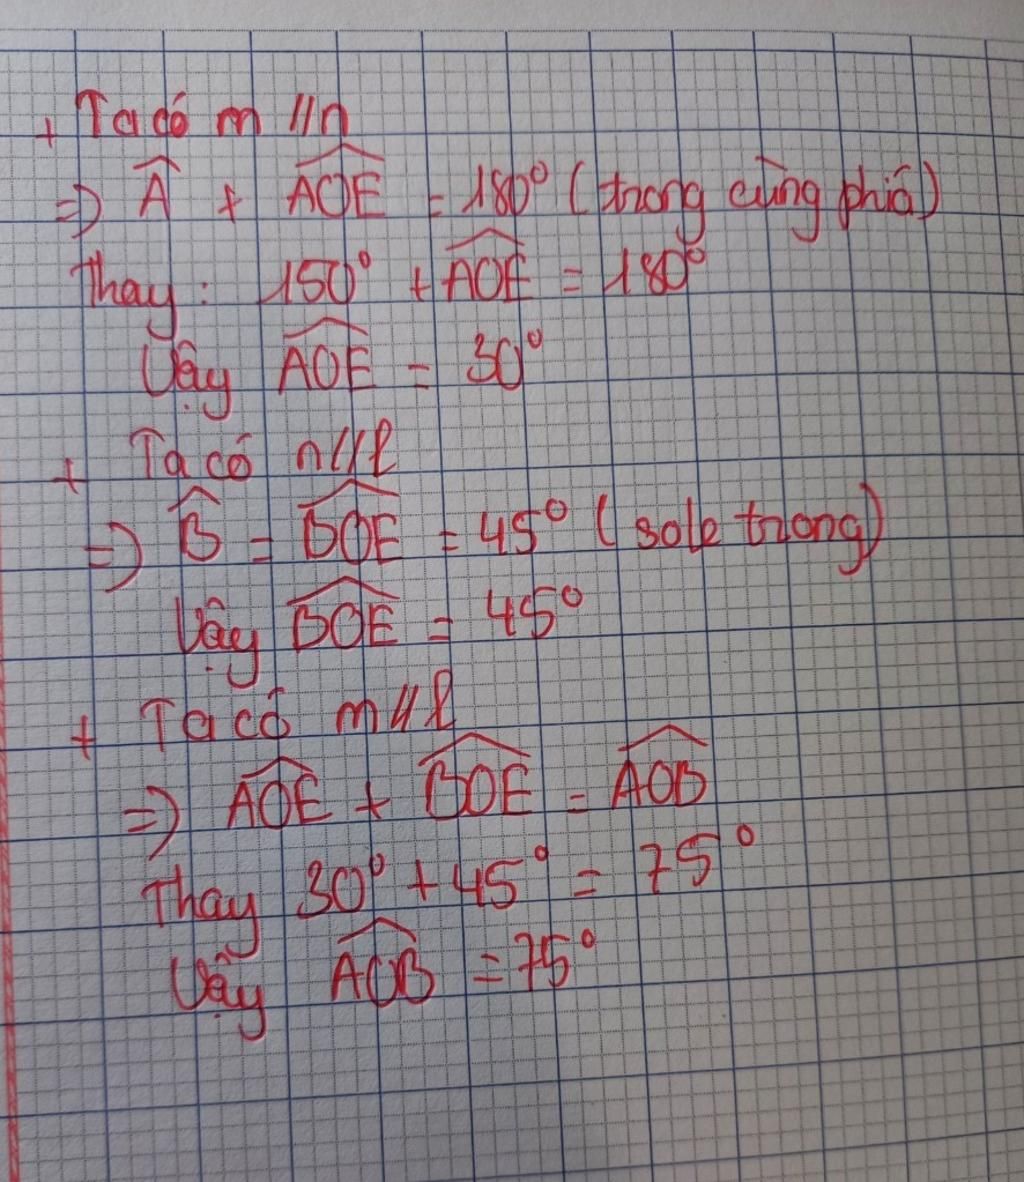 + Ta có m // n
=> Â + AOE = 180° ( trong cùng phiá )
Thay : 150° + AOE = 180°
Vậy AOE = 30°
+ Ta có n // l
=> B = BOE = 45° ( sole trong )
Vậy BOE = 45°
+ Ta có m // l
=> AOE + BOE = AOB
Thay 30° + 45° = 75°
Vậy AOB = 75°